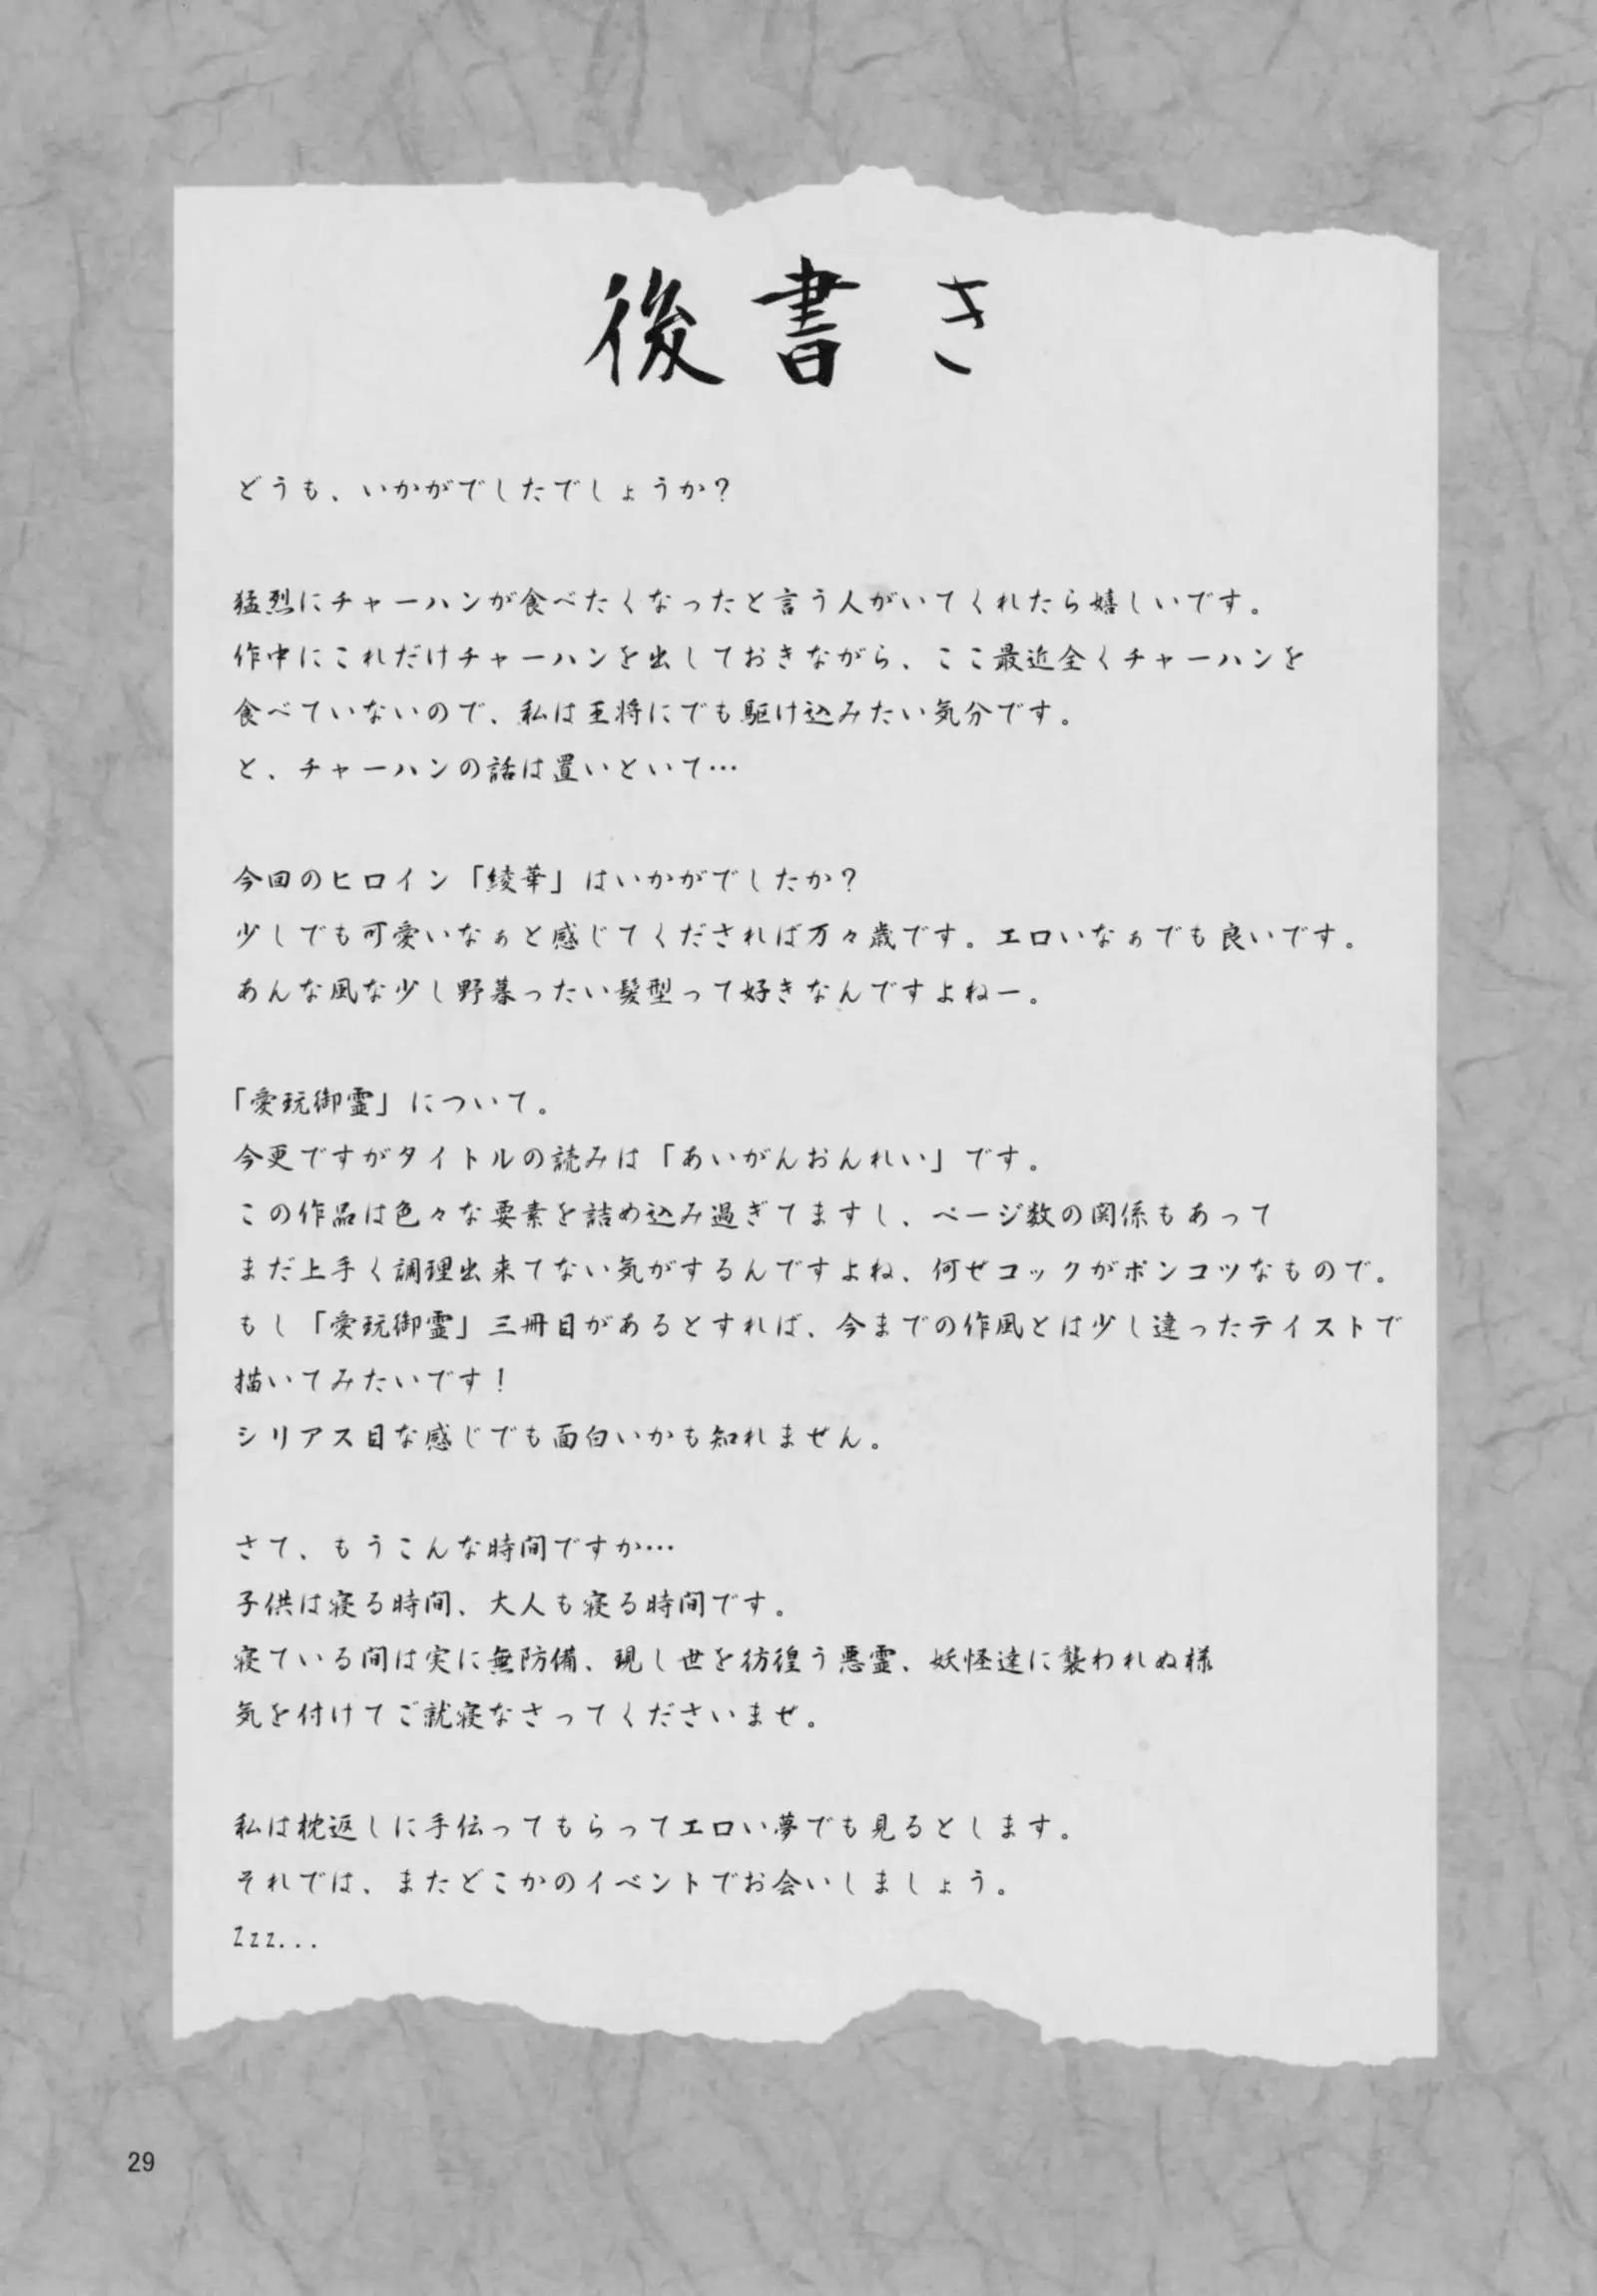 後書き
どうも、いかがでしたでしょうか？
猛烈にチャーハンが食べたくなったと言う人がいてくれたら嬉しいです。
作中にこれだけチャーハンを出しておきながら、ここ最近全くチャーハンを
食べていないので、私は王将にでも駆け込みたい気分です。
と、チャーハンの話は置いといて…
今回のヒロイン「綾華」はいかがでしたか？
少しでも可愛いなぁと感じてくだされば万々歳です。エロいなぁでも良いです。
あんな風な少し野暮ったい髪型って好きなんですよねー。
「愛玩御霊」について。
今更ですがタイトルの読みは「あいがんおんれい」です。
この作品は色々な要素を詰め込み過ぎてますし、ページ数の関係もあって
まだ上手く調理出来てない気がするんですよね、何ぜコックがポンコツなもので。
もし「愛玩御霊」三冊目があるとすれば、今までの作風とは少し違ったテイストで
描いてみたいです！
シリアス目な感じでも面白いかも知れません。
さて、もうこんな時間ですか…
子供は寝る時間、大人も寝る時間です。
寝ている間は実に無防備、現し世を彷徨う悪霊、妖怪達に襲われぬ様
気を付けてご就寝なさってくださいませ。
私は枕返しに手伝ってもらってエロい夢でも見るとします。
それでは、またどこかのイベントでお会いしましょう。
Zzz...
29